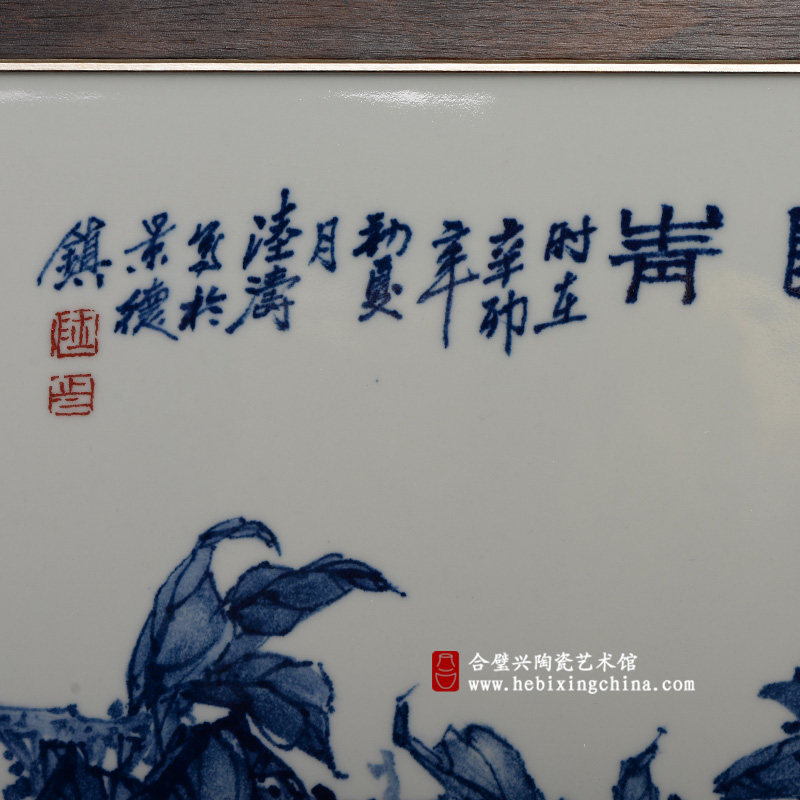 青
时在
辛卯
年
初夏
月
陆涛
写於
景德
鎮
合璧兴陶瓷艺术馆
www.hebixingchina.com